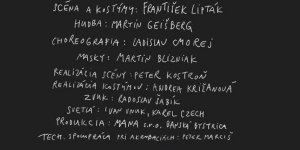 SCÉNA A KOSTÝMY: FRANTIŠEK LIPTÁK
HUDBA: MARTIN GEIŠBERG
CHOREOGRAFIA: LADISLAV CMOREJ
MASKY: MARTIN BLIZNIAK
REALIZÁCIA SCÉNY: PETER KOSTROŇ
REALIZÁCIA KOSTÝMOV: ANDREA KRIŽANOVÁ
ZVUK: RADOSLAV ŠABÍK
SVETLÁ: IVAN VNUK, KAREL CZECH
PRODUKCIA: MANA S.R.O. BANSKÁ BYSTRICA
TECH. SPOLUPRÁCA PRI AKROBACIÁCH: PETER MARCIŠ